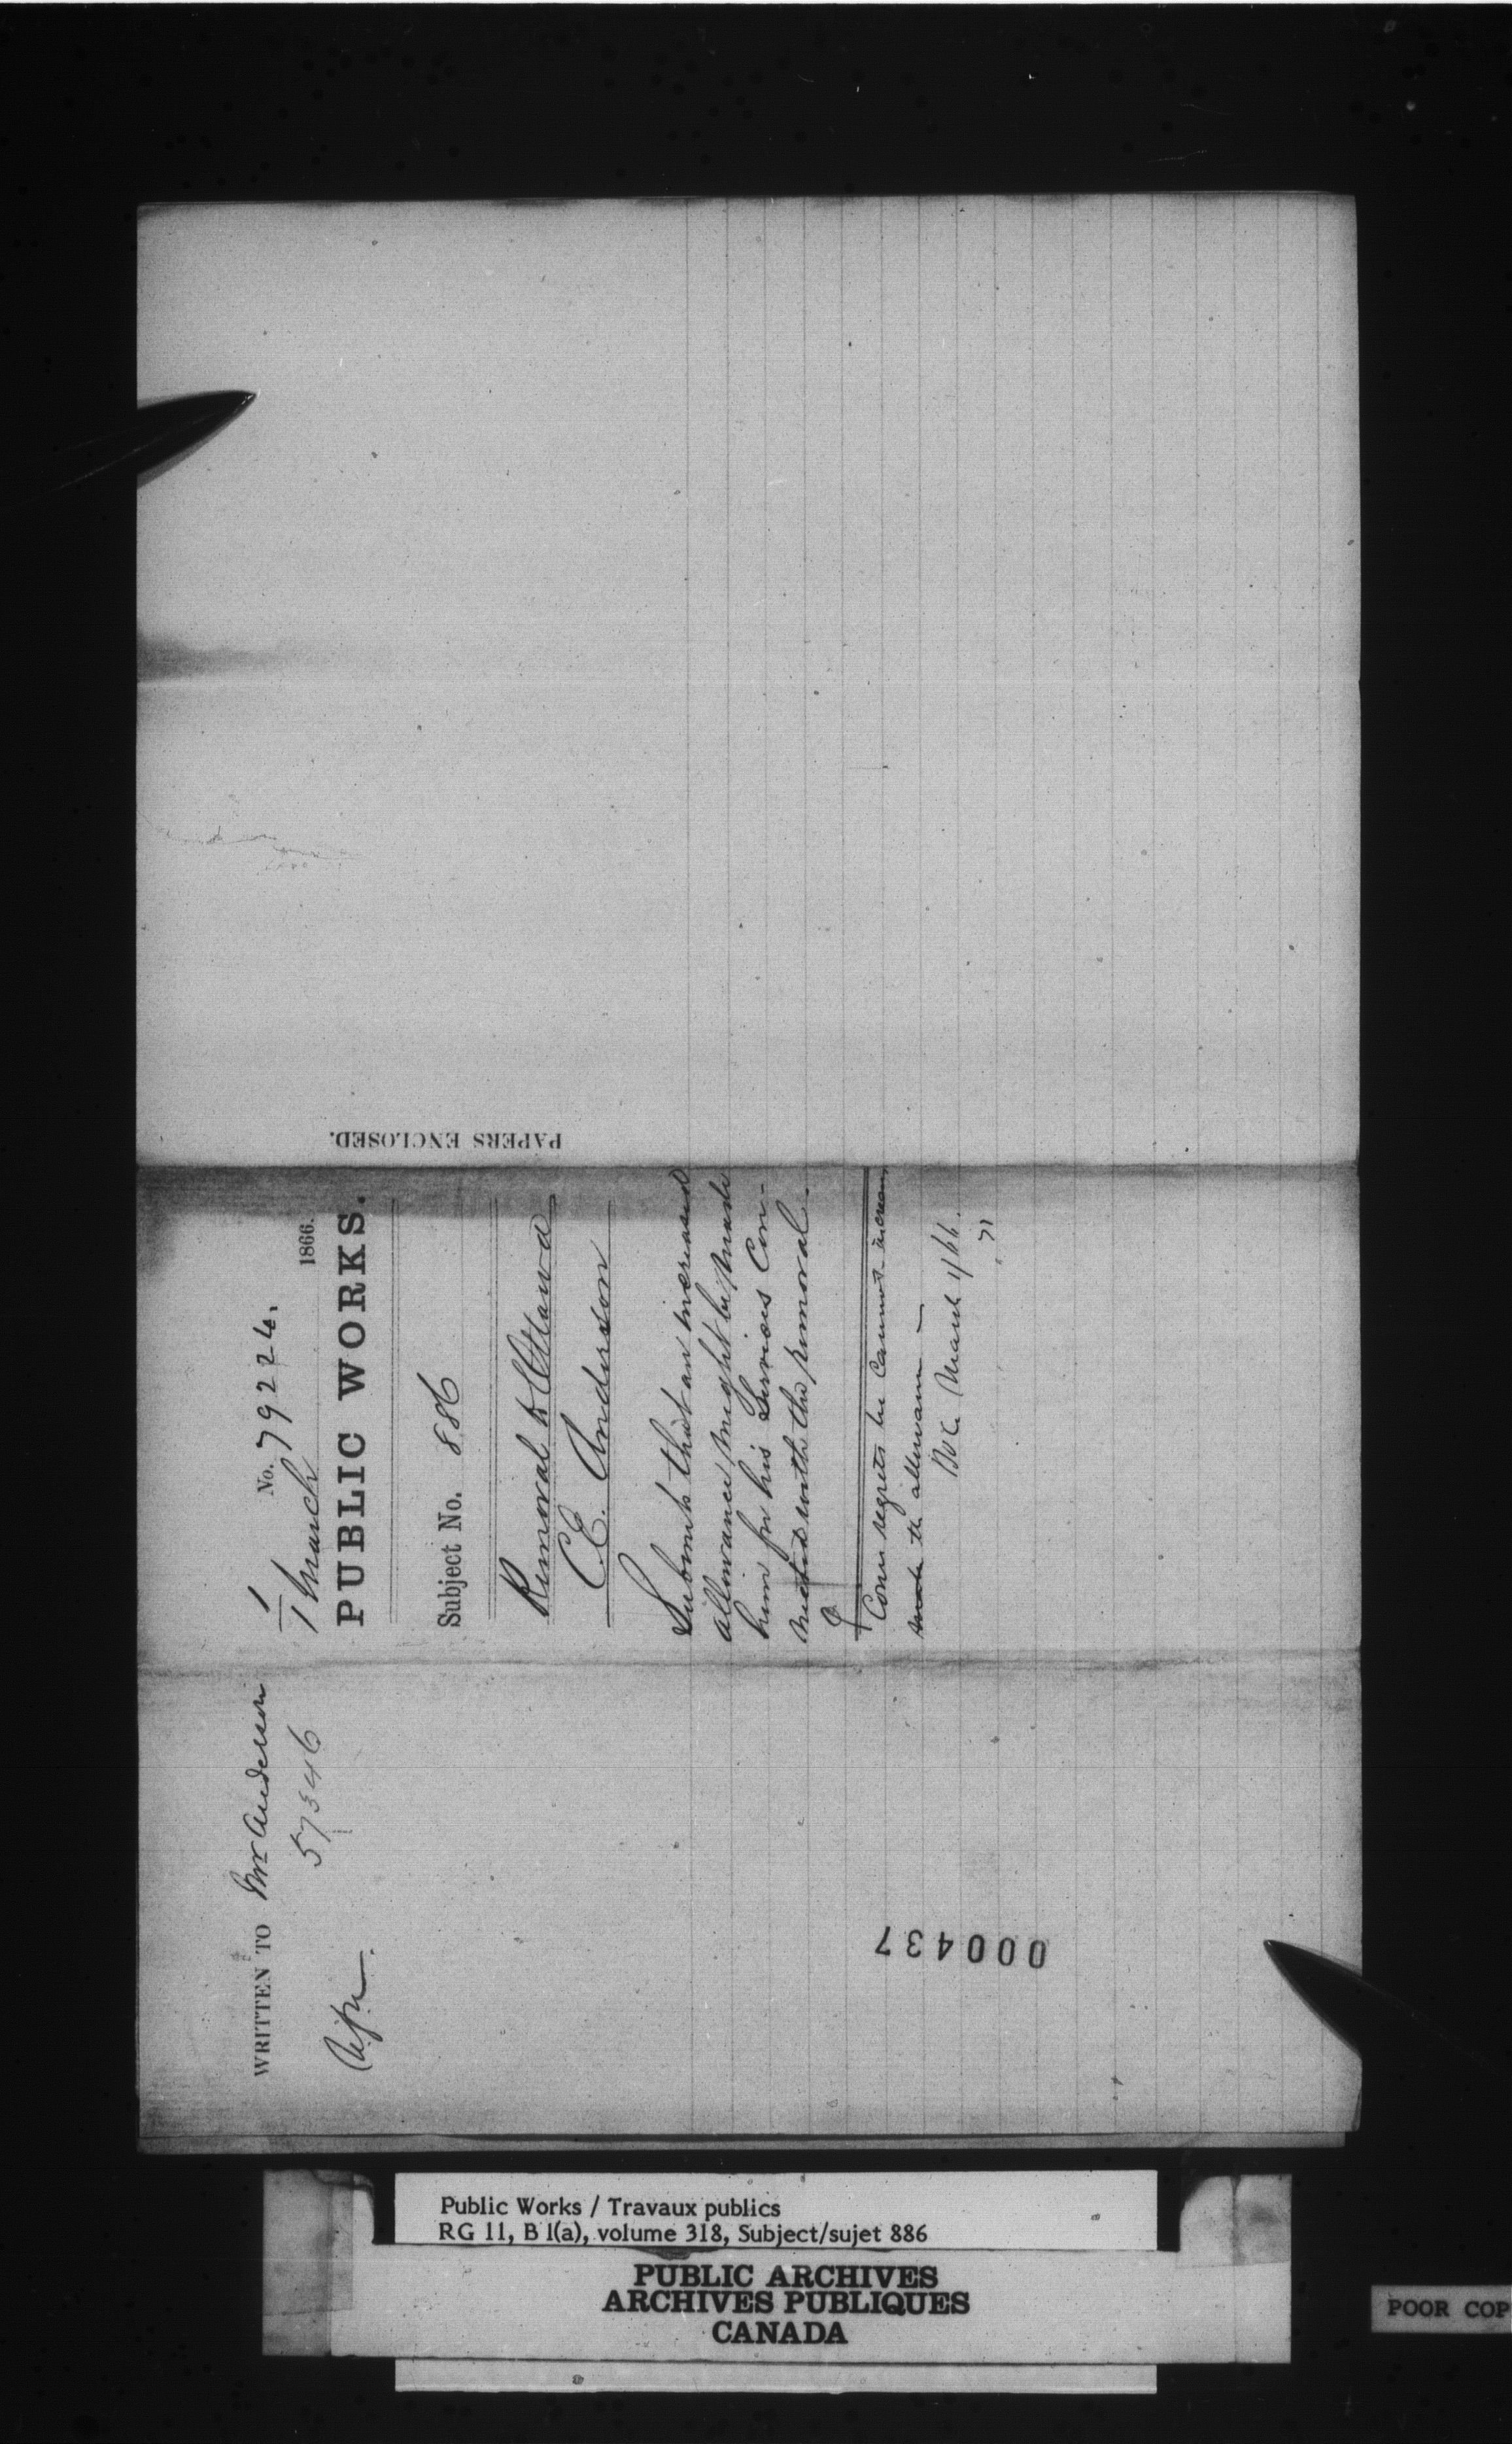 WRITTEN TO Mr Anderson
57346
1
No. 79224.
1 March 1866.
PUBLIC WORKS.
Subject No. 886
Removal to Ottawa
C E. Anderson
Submits that an increased
allowance might be made
him for his Services Con-
nected with the removal.
Comr regrets he Cannot increase
the allowance —
March 1/66.
71
PAPERS ENCLOSED.
000437
Public Works / Travaux publics
RG 11, B 1(a), volume 318, Subject/sujet 886
PUBLIC ARCHIVES
ARCHIVES PUBLIQUES
CANADA
POOR COP